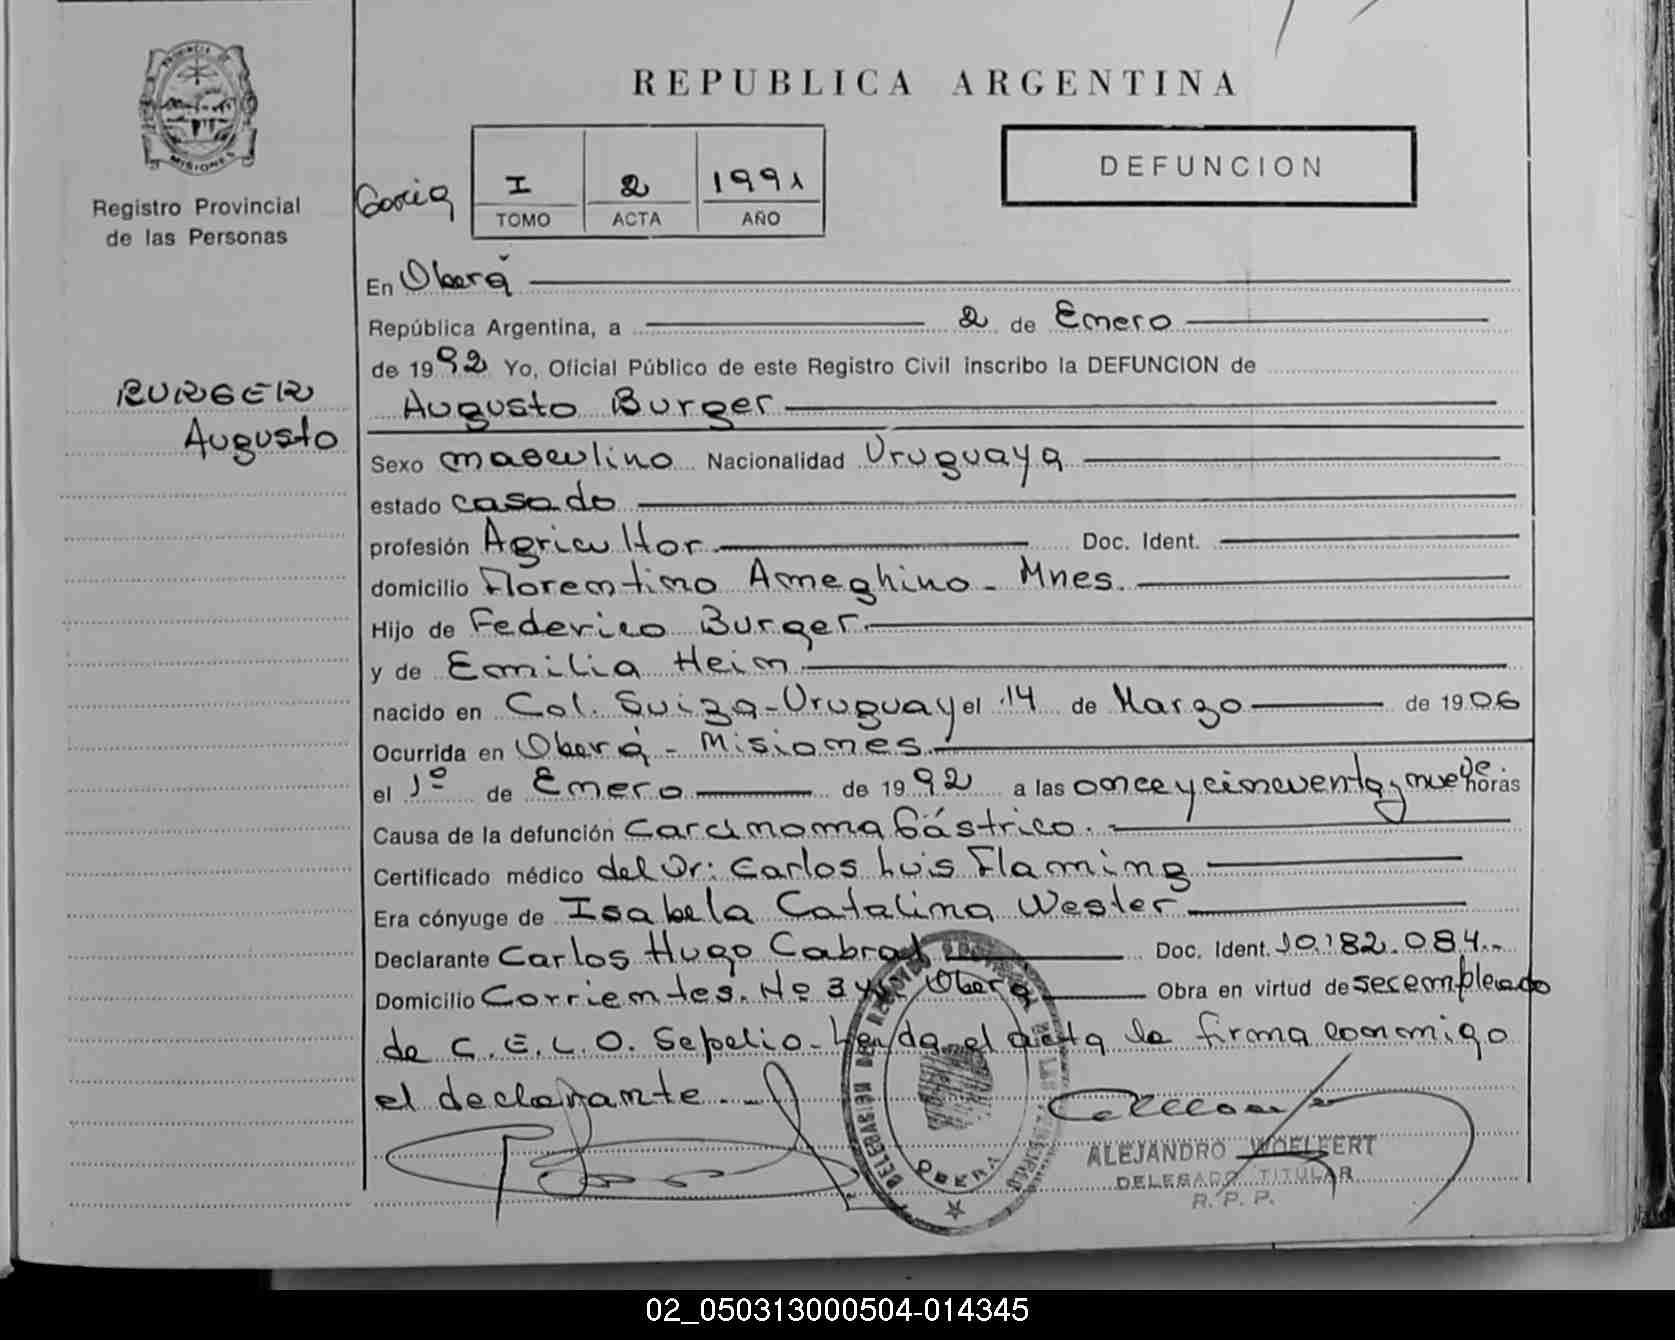 REPUBLICA ARGENTINA
PROVINCIA
MISIONES
Registro Provincial
de las Personas
I 2 1991
TOMO ACTA AÑO
DEFUNCION
En Oberá
República Argentina, a 2 de Enero
de 1992 Yo, Oficial Público de este Registro Civil inscribo la DEFUNCION de
BURGER
Augusto
Augusto Burger
Sexo masculino Nacionalidad Uruguaya
estado casado
profesión Agricultor Doc. Ident.
domicilio Florentino Ameghino - Mnes.
Hijo de Federico Burger
y de Emilia Heim
nacido en Col. Suiza - Uruguay el 14 de Marzo de 1906
Ocurrida en Oberá - Misiones
el 1º de Enero de 1992 a las once y cincuenta y nueve horas
Causa de la defunción Carcinoma Gástrico.
Certificado médico del Dr: Carlos Luis Flaming
Era cónyuge de Isabela Catalina Wester
Declarante Carlos Hugo Cabral Doc. Ident. 10.182.084.-
Domicilio Corrientes. Nº Oberá Obra en virtud de ser empleado
de C.E.L.O. Sepelio - Leída el acta la firma conmigo
el declarante.-
OBERA
ALEJANDRO WOELFERT
DELEGADO TITULAR
R. P. P.
02_050313000504-014345